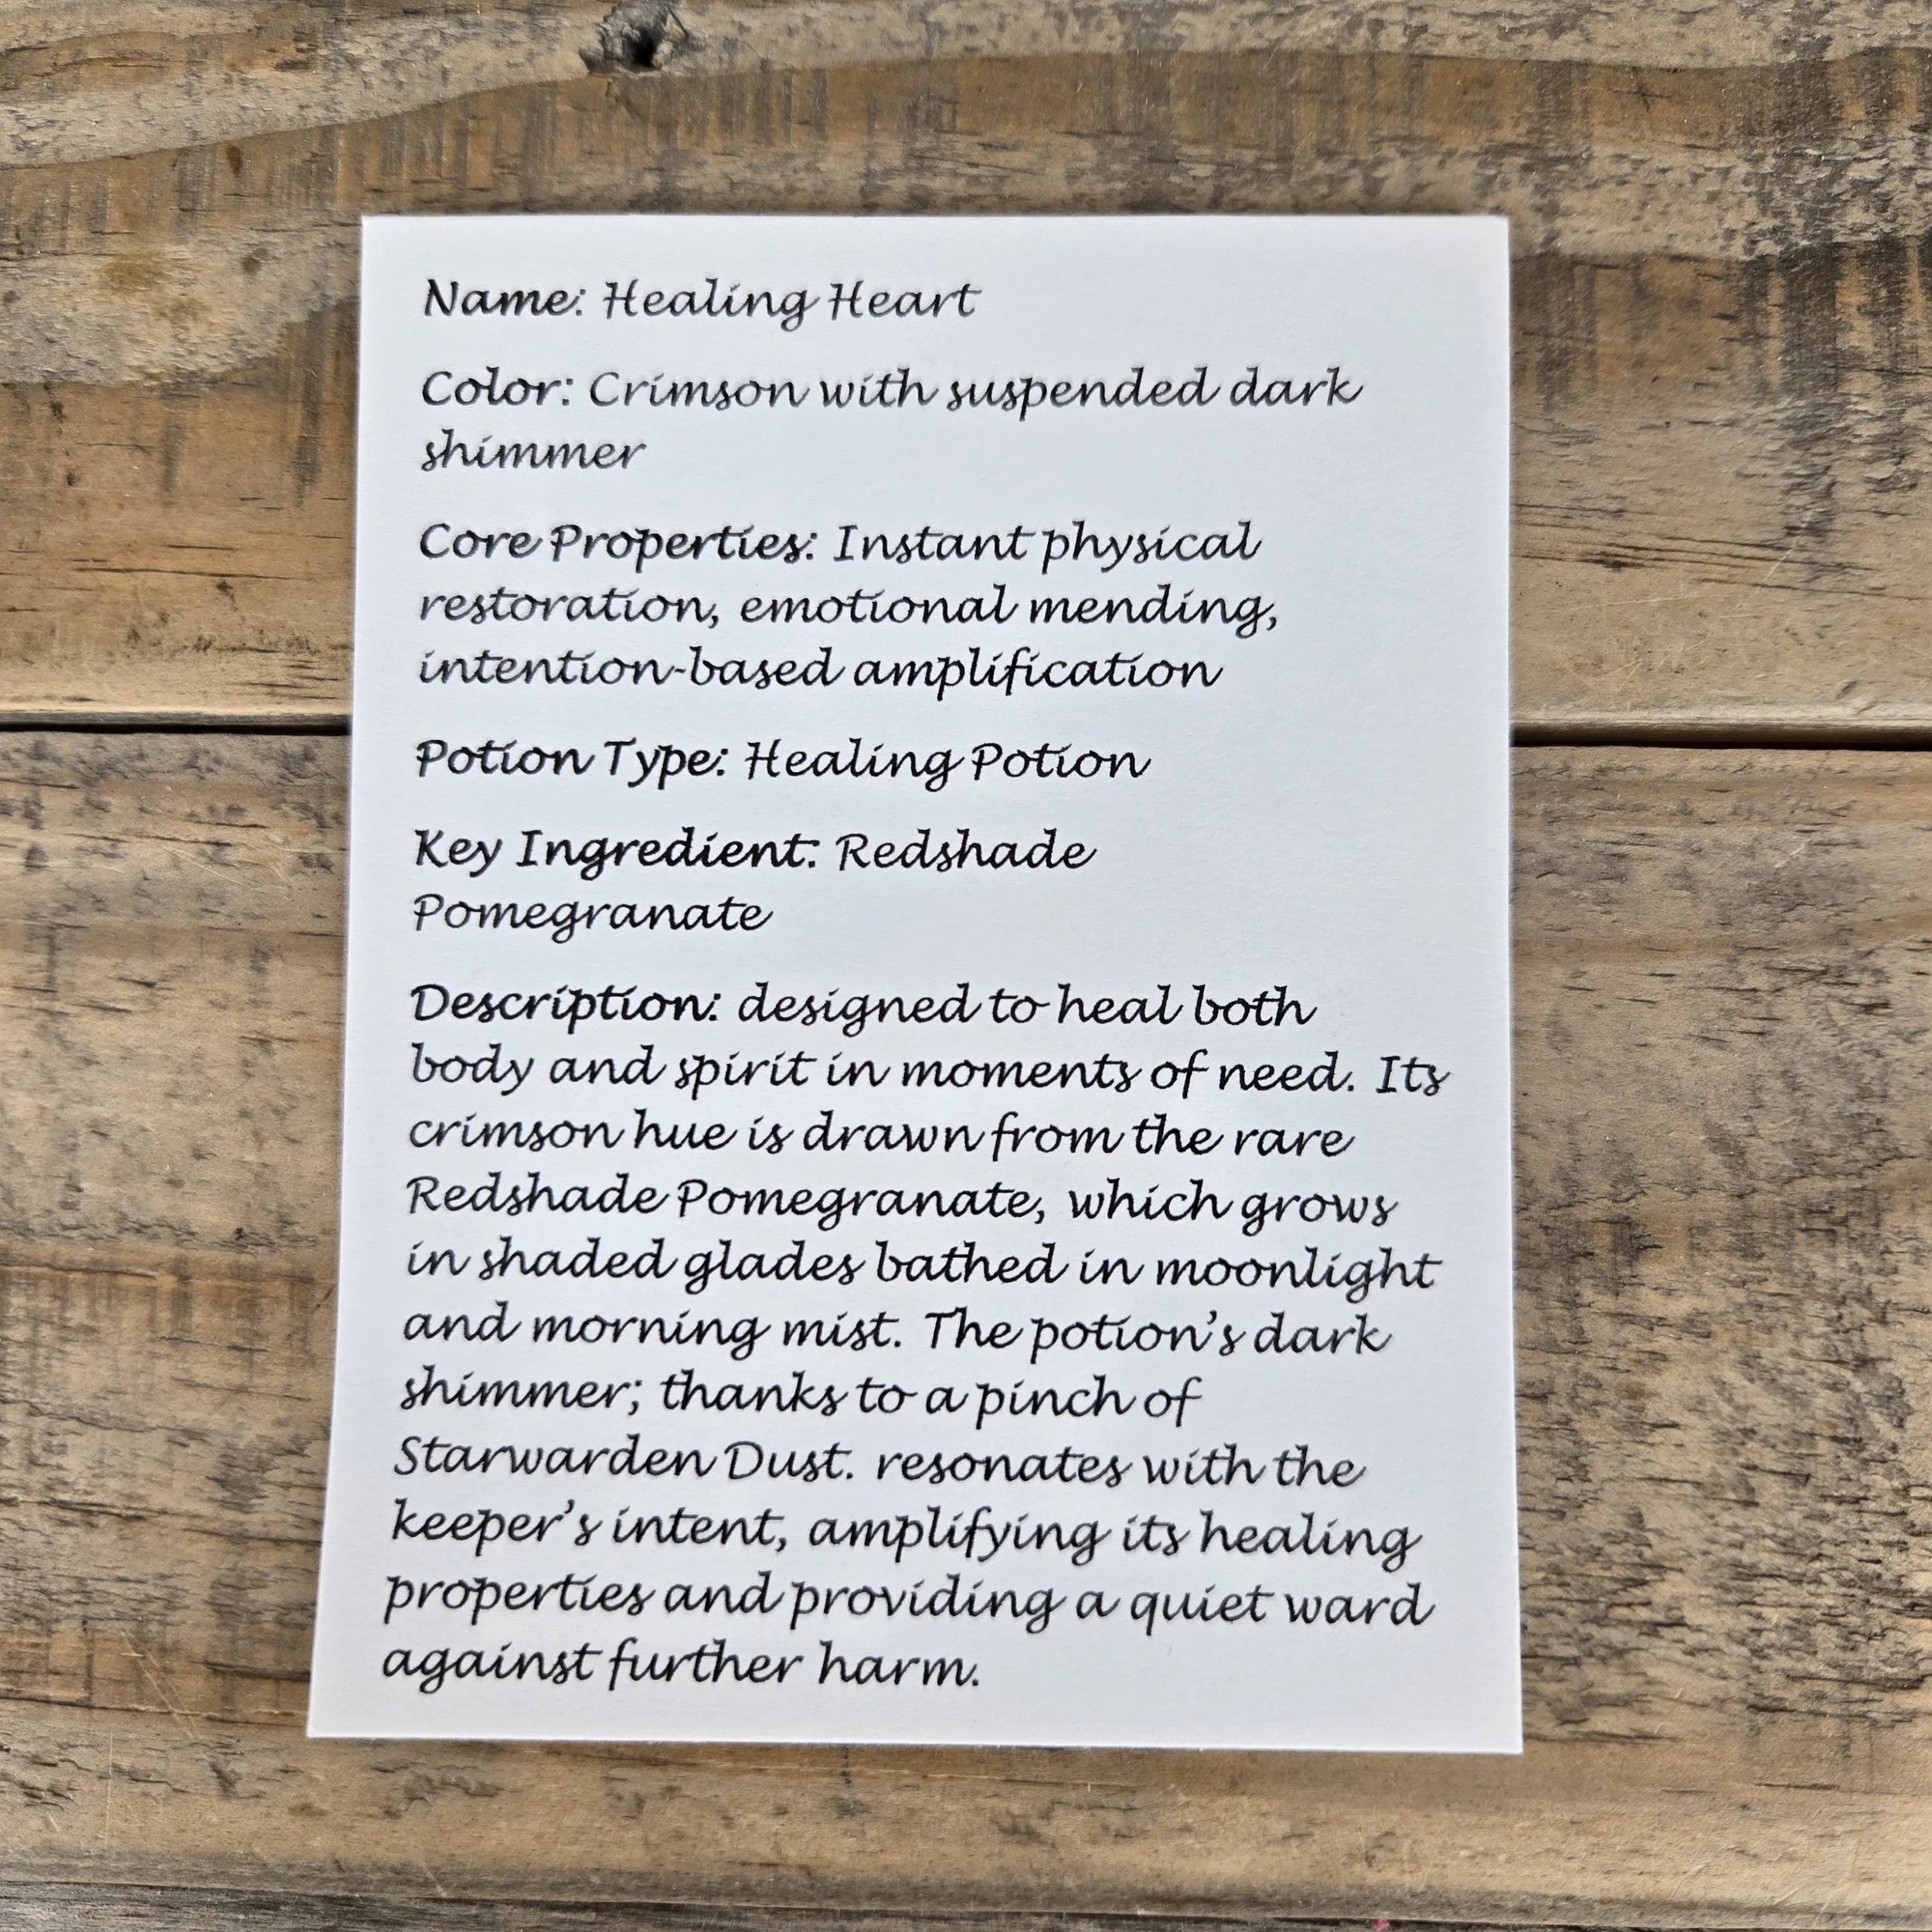 Name: Healing Heart
Color: Crimson with suspended dark
shimmer
Core Properties: Instant physical
restoration, emotional mending,
intention-based amplification
Potion Type: Healing Potion
Key Ingredient: Redshade
Pomegranate
Description: designed to heal both
body and spirit in moments of need. Its
crimson hue is drawn from the rare
Redshade Pomegranate, which grows
in shaded glades bathed in moonlight
and morning mist. The potion’s dark
shimmer; thanks to a pinch of
Starwarden Dust. resonates with the
keeper’s intent, amplifying its healing
properties and providing a quiet ward
against further harm.